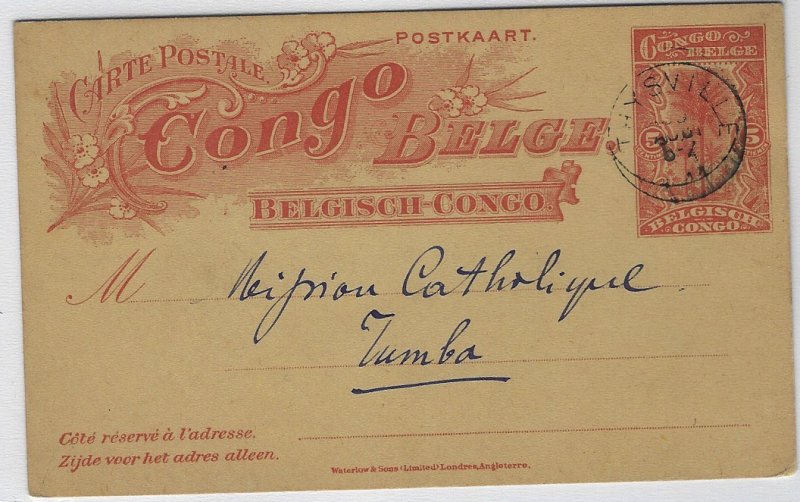 POSTKAART.
CARTE POSTALE.
Congo BELGE
BELGISCH-CONGO.
CONGO
BELGE
5 5
BELGISCH
CONGO.
THYSVILLE
M Mission Catholique
Tumba
Côté réservé à l'adresse.
Zijde voor het adres alleen.
Waterlow & Sons (Limited) Londres, Angleterre.